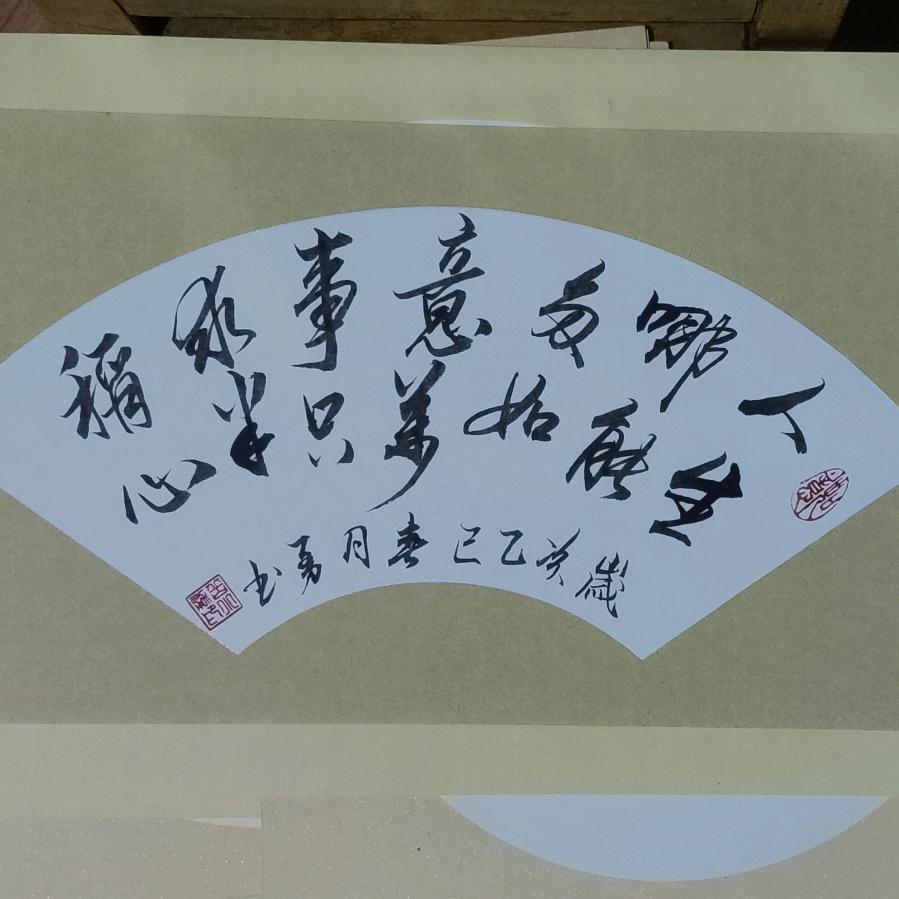 人生
哪能
多如
意萬
事只
求半
稱心
歲次乙巳春月勇书